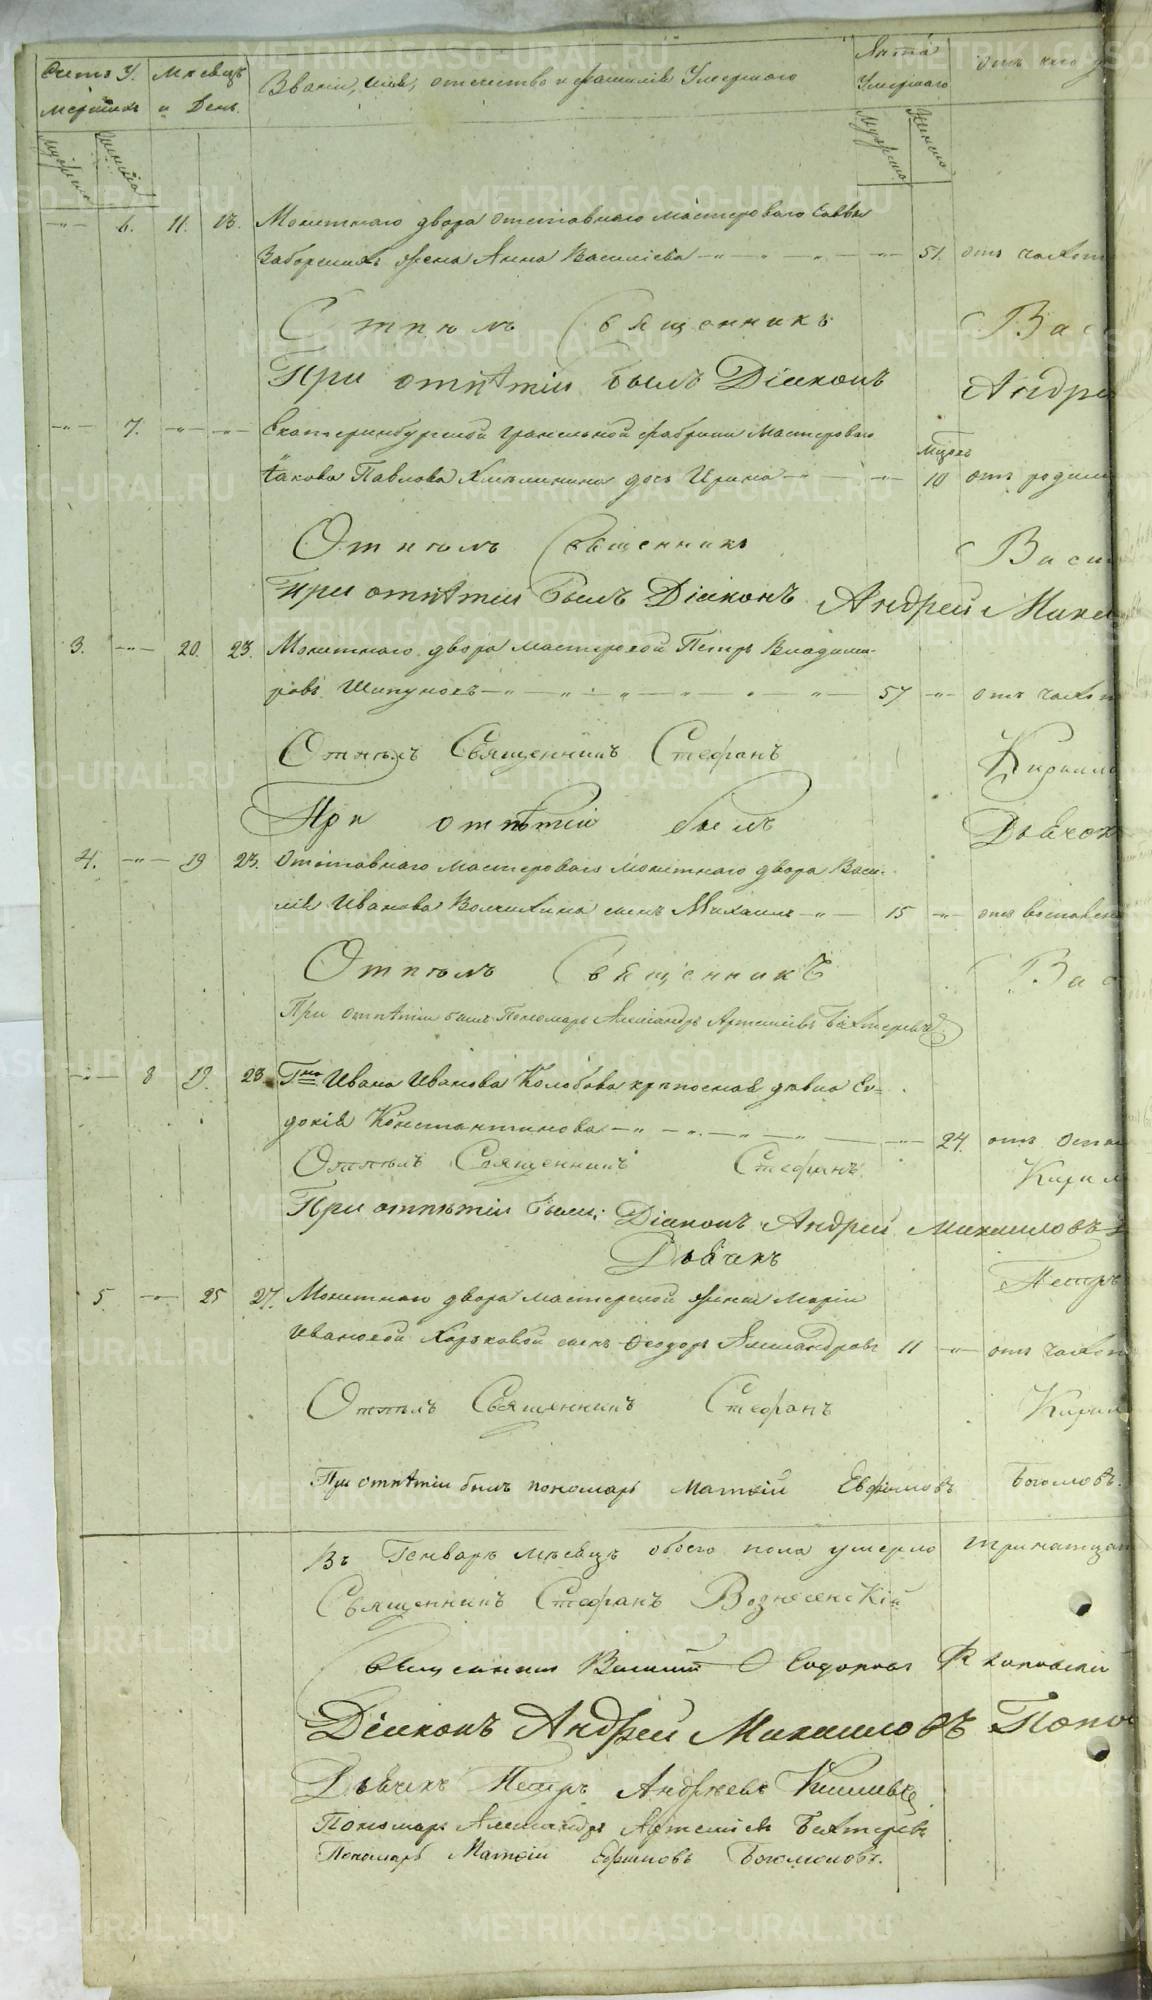 Счетъ У. Мѣсецъ Званіе, имя, отечество и фамилія Умершаго Лѣта отъ чего у
мершихъ и День. Умершаго
мужеска женска мужеска женска
6. 11. 13. Монетнаго двора отставнаго мастероваго Саввы
жена Анна Василіева 51. отъ чахот
Отпѣлъ Священникъ Вас
При отпѣтіи былъ Діаконъ Андре
7. Екатеринбургской гранильной фабрики Мастероваго
Іакова Павлова дочь Ирина мцовъ 10 отъ родим
Отпѣлъ Священникъ Васи
При отпѣтіи былъ Діаконъ Андрей Миха
3. 20. 23. Монетнаго двора мастеровой Петръ Владими-
ровъ Шипуновъ 57 отъ чахот
Отпѣлъ Священникъ Стефанъ Кирило
При отпѣтіи былъ Дьячокъ
4. 19 23. Отставнаго мастероваго Монетнаго двора Васи-
лія Иванова сынъ Михаилъ 15 отъ
Отпѣлъ Священникъ Вас
При отпѣтіи былъ Пономарь Александръ Артеміевъ Бяхтеревъ
8 19. 23 Гна Ивана Иванова Колобова крѣпосная дѣвка Ев=
докія Константинова 24. отъ
Отпѣлъ Священникъ Стефанъ Кирил
При отпѣтіи были: Діаконъ Андрей Михаиловъ
Дьячекъ Петръ
5. 25 27. Монетнаго двора мастерской жены Маріи
Ивановой Хорьковой сынъ Ѳеодоръ Александровъ 11 отъ чахот
Отпѣлъ Священникъ Стефанъ Кирил
При отпѣтіи былъ пономарь Матѳій Евфимовъ Богомоловъ.
Въ Генварѣ мѣсецѣ обоего пола умерло тринатцат
Священникъ Стефанъ Вознесенскій
Священникъ Василій
Діаконъ Андрей Михаиловъ Попо
Дьячекъ Петръ Андреевъ
Пономарь Александръ Артеміевъ Бяхтеревъ
Пономарь Матѳій Ефимовъ Богомоловъ.
METRIKI.GASO-URAL.RU